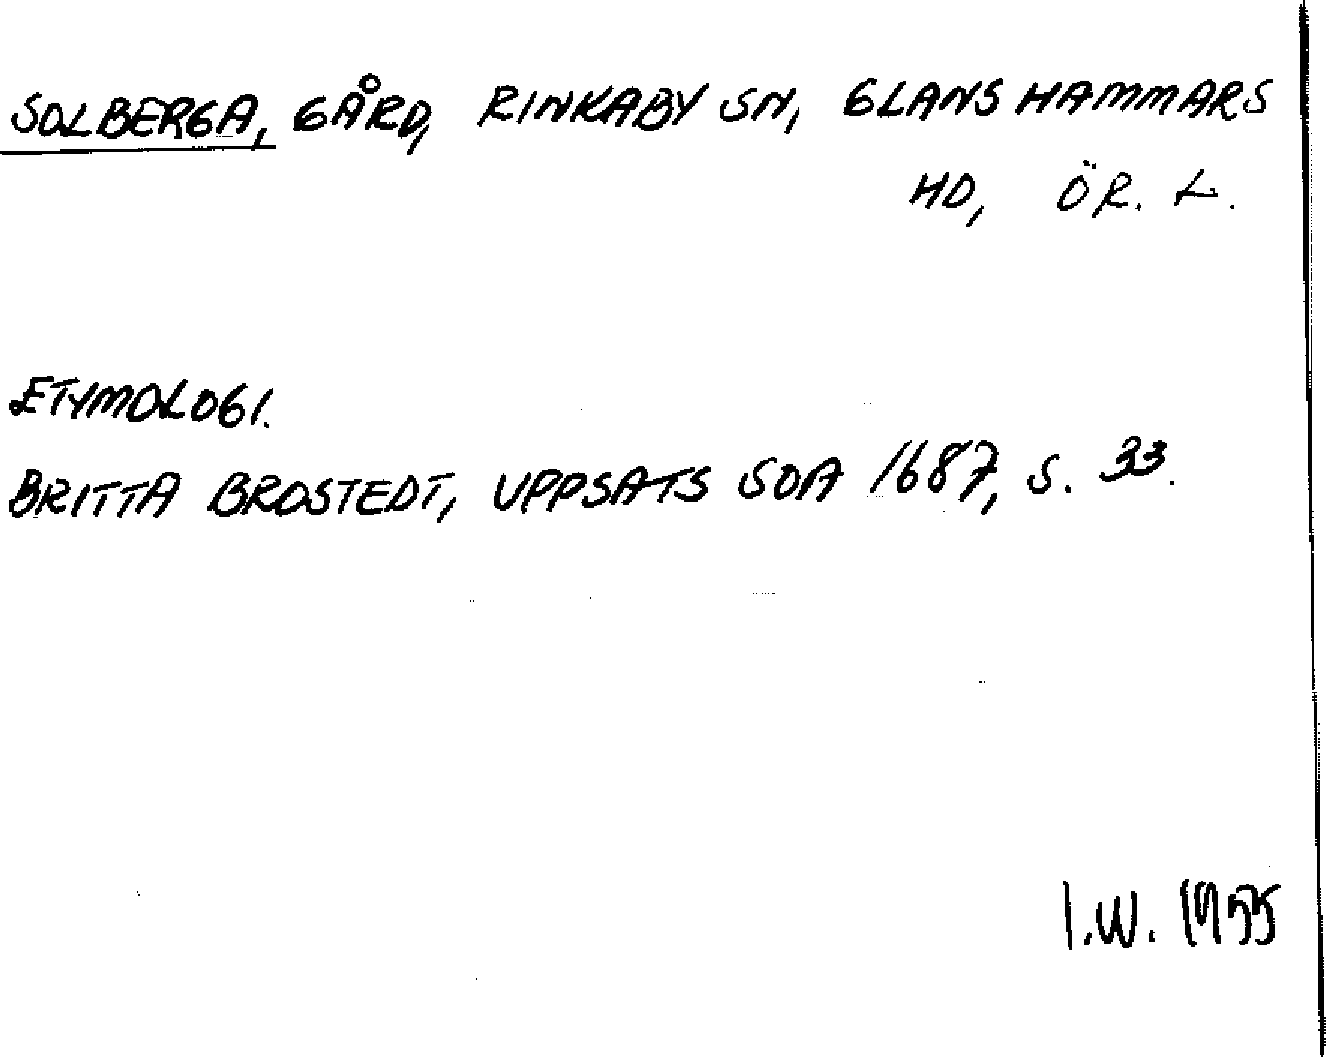 SOLBERGA, GÅRD, RINKABY SN, GLANSHAMMARS
HD, ÖR. L.
ETYMOLOGI.
BRITTA BROSTEDT, UPPSATS SOA 1687, S. 33.
I.W. 1955